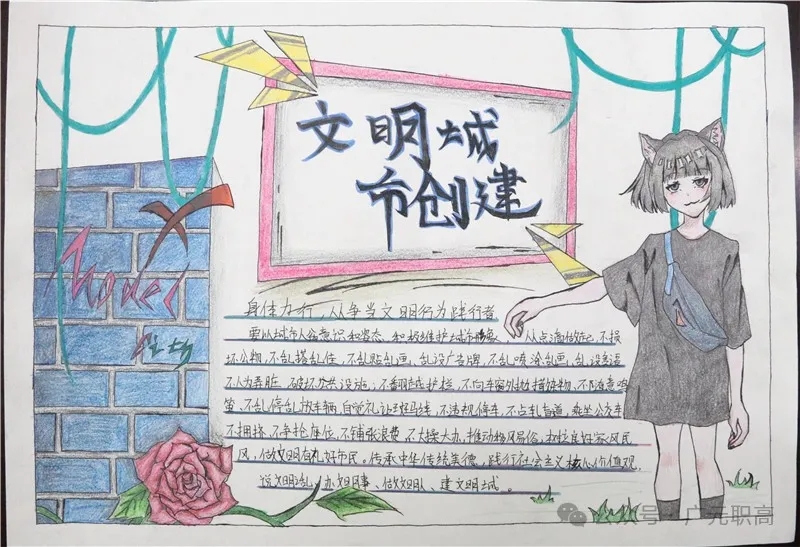 文明城
市创建
Model
身体力行，从争当文明行为践行者
要以城市人翁意识和姿态、积极维护城市形象、从点滴做起、不损
坏公物、不乱搭乱住、不乱贴乱画、乱设广告牌、不乱喷涂乱画、乱设
不人为弄脏、破坏公共设施；不翻越护栏、不向车窗外抛物、不随意鸣
笛、不乱停乱放车辆、自觉礼让斑马线、不违规停车、不占盲道、乘坐公交车
不拥挤、不争抢座位、不铺张浪费、不大操大办、推动移风易俗、树立良好家风民
风，做文明有礼好市民。传承中华传统美德，践行社会主义核心价值观，
说文明话、办文明事、做文明人、建文明城。
公众号·广元职高